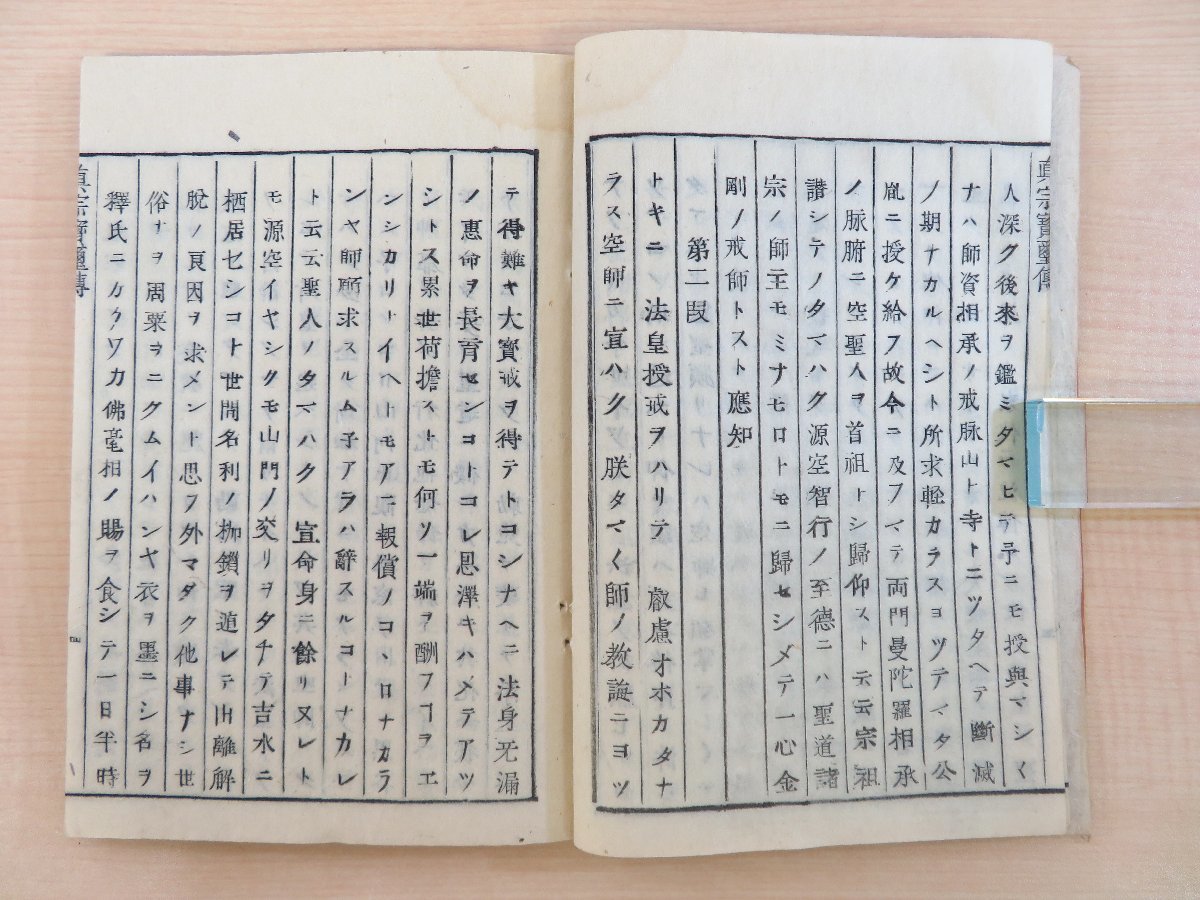 眞宗寳璽傳
人深ク後來ヲ鑑ミタマヒテ予ニモ授與マシ〱
ナハ師資相承ノ戒脉山ト寺トニツタヘテ斷滅
ノ期ナカルヘシト所求軽カラスヨツテマタ公
胤ニ授ケ給フ故今ニ及フマテ両門曼陀羅相承
ノ脉腑ニ空聖人ヲ首祖トシ歸仰スト云云宗祖
讃シテノタマハク源空智行ノ至德ニハ聖道諸
宗ノ師主モミナモロトモニ歸セシメテ一心金
剛ノ戒師トスト應知
第二叚
トキニ 法皇授戒ヲハリテ 叡慮オホカタナ
ラス空師ニ宣ハク 朕タマ〱師ノ教誨ニヨツ
テ得難キ大寶戒ヲ得テトコシナヘニ法身无漏
ノ惠命ヲ長育センコトコレ恩澤キハメテアツ
シトス累世荷擔ストモ何ソ一端ヲ酬フコヲエ
ンシカリトイヘトモアニ報償ノコヽロナカラ
ンヤ師願求スルム子アラハ辭スルコトナカレ
ト云云聖人ノタマハク 宣命身ニ餘リヌレト
モ源空イヤシクモ山門ノ交リヲタチテ吉水ニ
栖居セシコト世間名利ノ枷鎖ヲ遁レテ出離解
脫ノ良因ヲ求メント思フ外マタク他事ナシ世
俗ナヲ周粟ヲニクムイハンヤ衣ヲ墨ニシ名ヲ
釋氏ニカクワカ佛毫相ノ賜ヲ食シテ一日半時
眞宗寳璽傳
四